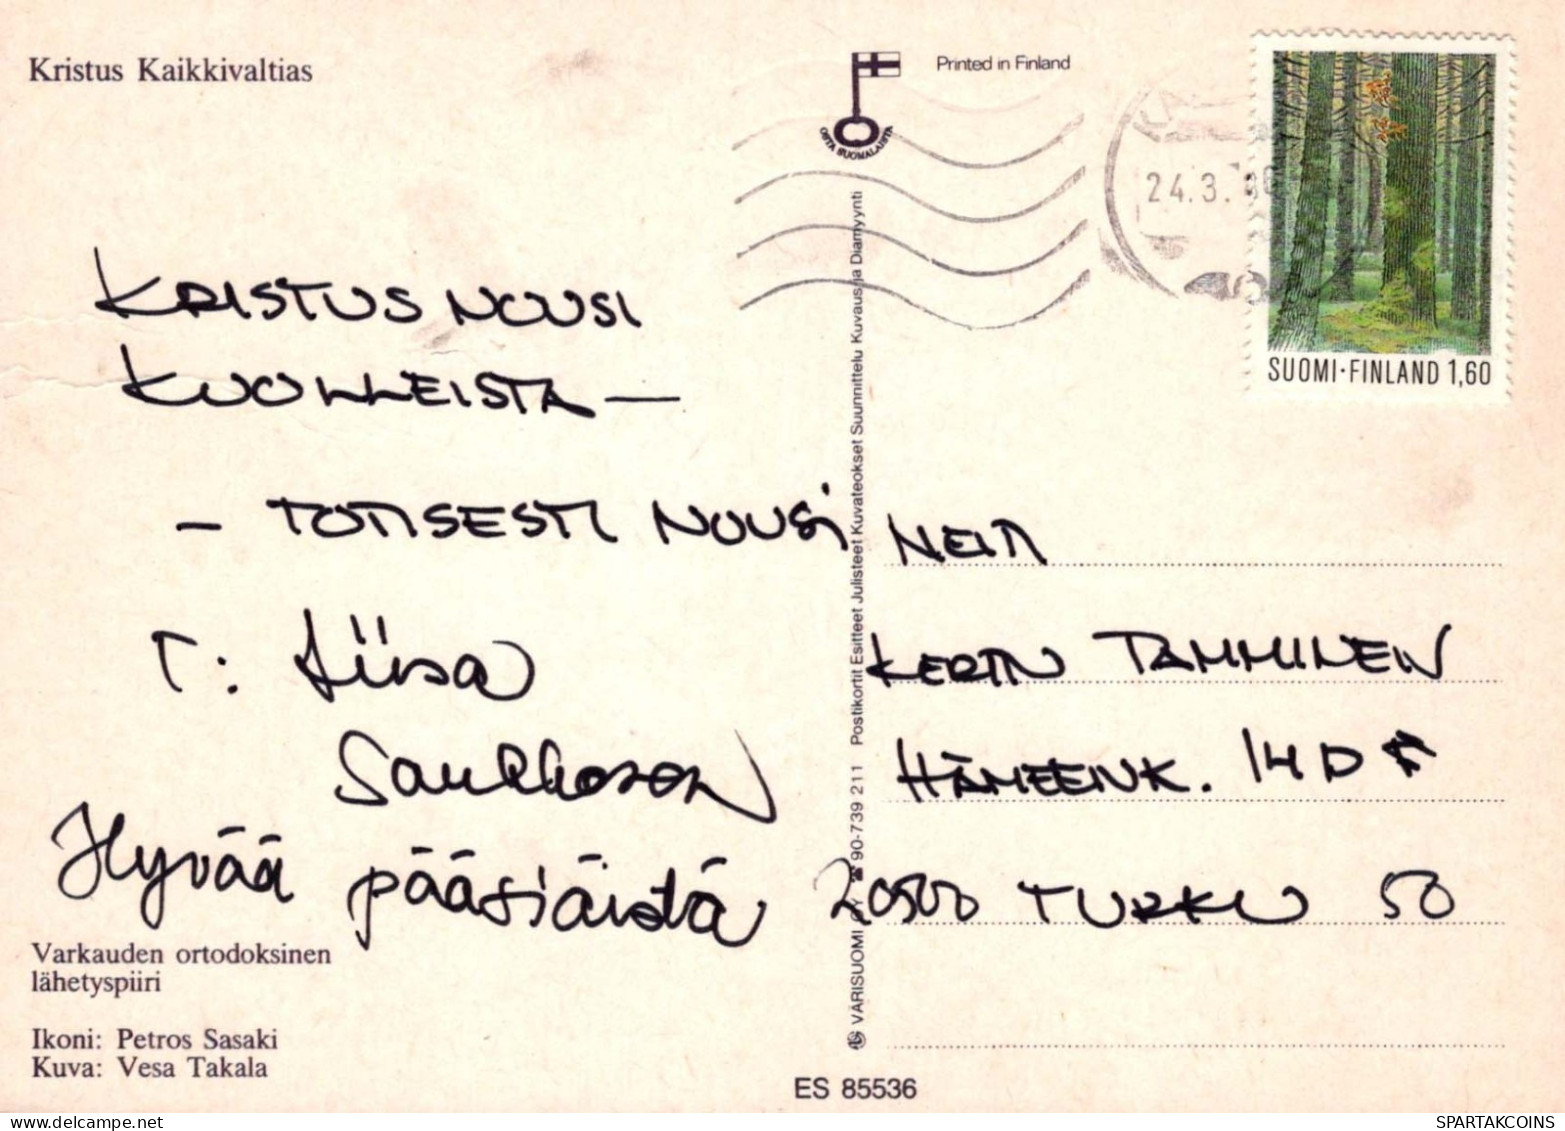 Kristus Kaikkivaltias
Printed in Finland
OSTA SUOMALAISTA
24.3.
SUOMI·FINLAND 1,60
KRISTUS NOUSI
KUOLLEISTA —
— TOTISESTI NOUSI
T: Liisa
Hyvää pääsiäistä
NEITI
TAMMINEN
HÄMEENK. 14 D
20500 TURKU 50
Varkauden ortodoksinen
lähetyspiiri
Ikoni: Petros Sasaki
Kuva: Vesa Takala
VÄRISUOMI OY ☎ 90-739 211 Postikortit Esitteet Julisteet Kuvateokset Suunnittelu Kuvaus ja Diamyynti
ES 85536
SPARTAKCOINS